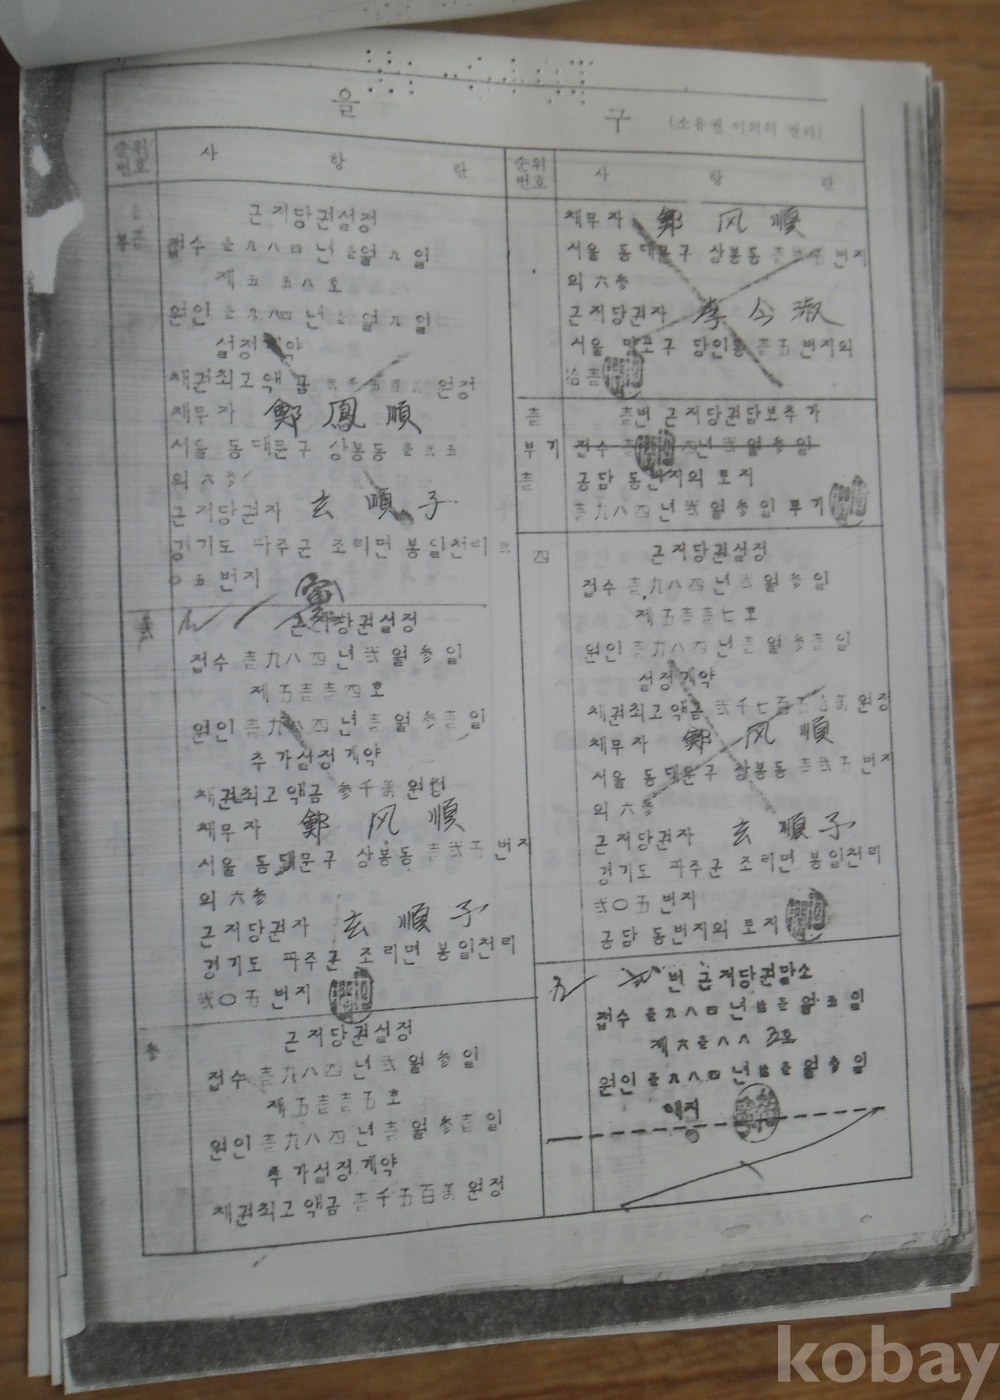 을 구 (소유권 이외의 권리)
순위번호 사 항 란
근저당권설정
접수 壹九八四年 壹월 九일
제五五八호
원인 壹九八四년 壹월 九일
설정계약
채권최고액 금 원정
채무자 鄭鳳順
서울 동대문구 상봉동 壹貳五
의 六參
근저당권자 玄順子
경기도 파주군 조리면 봉일천리 貳
〇五번지
근저당권설정
접수 壹九八四년 貳월 參일
제五壹壹四호
원인 壹九八四년 壹월 參壹일
추가설정계약
채권최고액금 參千萬원정
채무자 鄭风順
서울 동대문구 상봉동 壹貳五번지
의 六參
근저당권자 玄順子
경기도 파주군 조리면 봉일천리
貳〇五번지
參
근저당권설정
접수 壹九八四년 貳월 參일
제五壹壹五호
원인 壹九八四년 壹월 參壹일
추가설정계약
채권최고액금 壹千五百萬원정
순위번호 사 항 란
채무자 鄭风順
서울 동대문구 상봉동 壹貳五번지
의 六參
근저당권자 李今淑
서울 마포구 당인동 壹五번지의
壹 壹번 근저당권담보추가
부기 접수 壹九八四년 貳월 參일
壹 공담 동번지의 토지
壹九八四년 貳월 參일 부기
四 근저당권설정
접수 壹九八四년 貳월 參일
제五壹壹七호
원인 壹九八四년 壹월 參壹일
설정계약
채권최고액금 貳千七百五十萬원정
채무자 鄭风順
서울 동대문구 상봉동 壹貳五번지
의 六參
근저당권자 玄順子
경기도 파주군 조리면 봉일천리
貳〇五번지
공담 동번지의 토지
五 번 근저당권말소
접수 壹九八四년 월 일
제六壹八八 호
원인 壹九八四년 월 일
해지
kobay